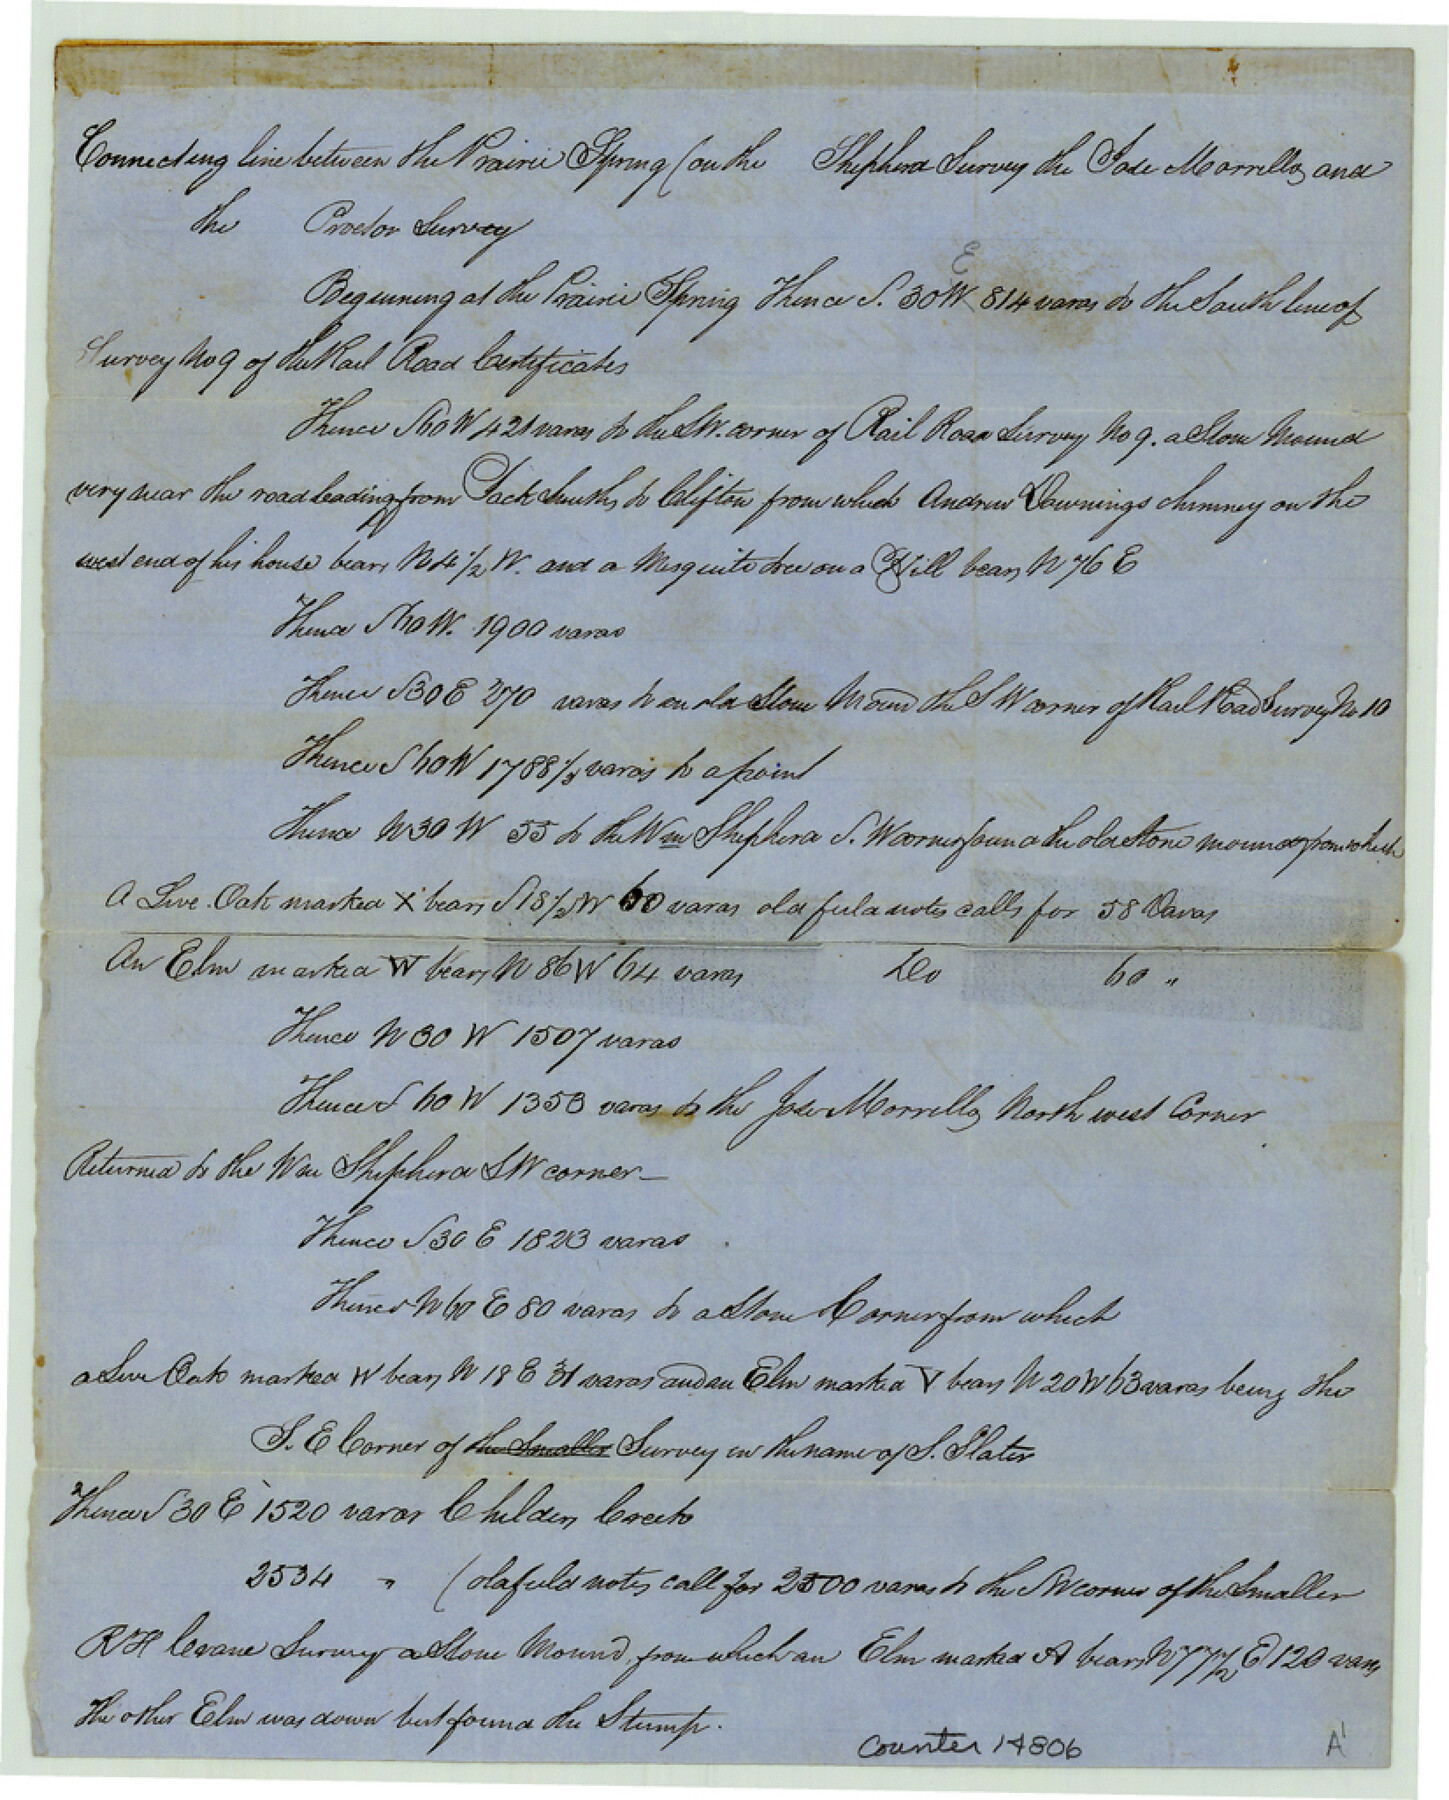 Connecting line between the Prairie Spring (on the Shepherd Survey the Jose Morrello, and
the Proctor Survey
E
Beginning at the Prairie Spring Thence S. 30 W 814 varas to the South line of
Survey No 9 of the Rail Road Certificates
Thence S 60 W 421 varas to the S.W. corner of Rail Road Survey No 9. a Stone Mound
very near the road leading from Jack Smiths to Clifton from which Andrew Downings chimney on the
west end of his house bears N 4 1/2 W. and a Mesquite tree on a Hill bears N 76 E
Thence S 60 W. 1900 varas
Thence S 30 E 370 varas to an old Stone Mound the S W corner of Rail Road Survey No 10
Thence S 60 W 1788 1/2 varas to a point
Thence N 30 W 55 to the Wm Shepherd S. W corner found the old Stone mound from which
A Live Oak marked X bears S 18 1/2 W 60 varas old field notes calls for 58 Varas
An Elm marked W bears N 86 W 64 varas Do 60 "
Thence N 30 W 1507 varas
Thence S 60 W 1353 varas to the Jose Morrello, North west Corner
Returned to the Wm Shepherd S W corner —
Thence S 30 E 1823 varas
Thence N 60 E 80 varas to a Stone Corner from which
a Live Oak marked W bears N 18 E 31 varas and an Elm marked V bears N 20 W 63 varas being the
S. E Corner of the Smaller Survey in the name of S. Slater
Thence S 30 E 1520 varas Childers Creek
2534 " (old field notes call for 2500 varas to the S W corner of the Smaller
R H Crane Survey a Stone Mound, from which an Elm marked A bears N 77 1/2 E 120 varas
the other Elm was down but found the Stump.
counter 14806
A'